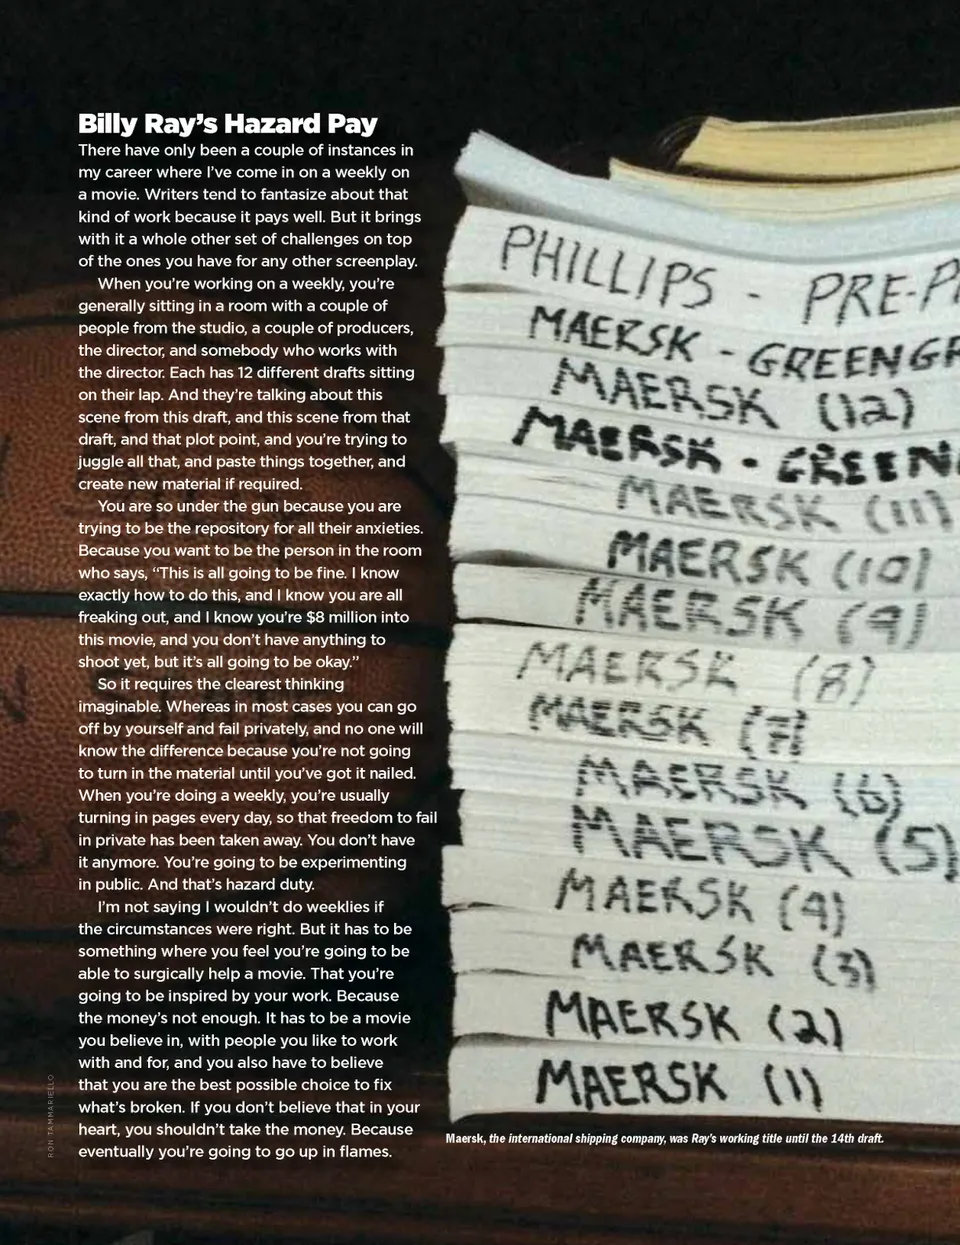 Billy Ray’s Hazard Pay
There have only been a couple of instances in
my career where I’ve come in on a weekly on
a movie. Writers tend to fantasize about that
kind of work because it pays well. But it brings
with it a whole other set of challenges on top
of the ones you have for any other screenplay.
When you’re working on a weekly, you’re
generally sitting in a room with a couple of
people from the studio, a couple of producers,
the director, and somebody who works with
the director. Each has 12 different drafts sitting
on their lap. And they’re talking about this
scene from this draft, and this scene from that
draft, and that plot point, and you’re trying to
juggle all that, and paste things together, and
create new material if required.
You are so under the gun because you are
trying to be the repository for all their anxieties.
Because you want to be the person in the room
who says, “This is all going to be fine. I know
exactly how to do this, and I know you are all
freaking out, and I know you’re $8 million into
this movie, and you don’t have anything to
shoot yet, but it’s all going to be okay.”
So it requires the clearest thinking
imaginable. Whereas in most cases you can go
off by yourself and fail privately, and no one will
know the difference because you’re not going
to turn in the material until you’ve got it nailed.
When you’re doing a weekly, you’re usually
turning in pages every day, so that freedom to fail
in private has been taken away. You don’t have
it anymore. You’re going to be experimenting
in public. And that’s hazard duty.
I’m not saying I wouldn’t do weeklies if
the circumstances were right. But it has to be
something where you feel you’re going to be
able to surgically help a movie. That you’re
going to be inspired by your work. Because
the money’s not enough. It has to be a movie
you believe in, with people you like to work
with and for, and you also have to believe
that you are the best possible choice to fix
what’s broken. If you don’t believe that in your
heart, you shouldn’t take the money. Because
eventually you’re going to go up in flames.
RON TAMMARIELLO
PHILLIPS - PRE-P
MAERSK - GREENGR
MAERSK (12)
MAERSK - GREEN
MAERSK (11)
MAERSK (10)
MAERSK (9)
MAERSK (8)
MAERSK (7)
MAERSK (6)
MAERSK (5)
MAERSK (4)
MAERSK (3)
MAERSK (2)
MAERSK (1)
Maersk, the international shipping company, was Ray’s working title until the 14th draft.